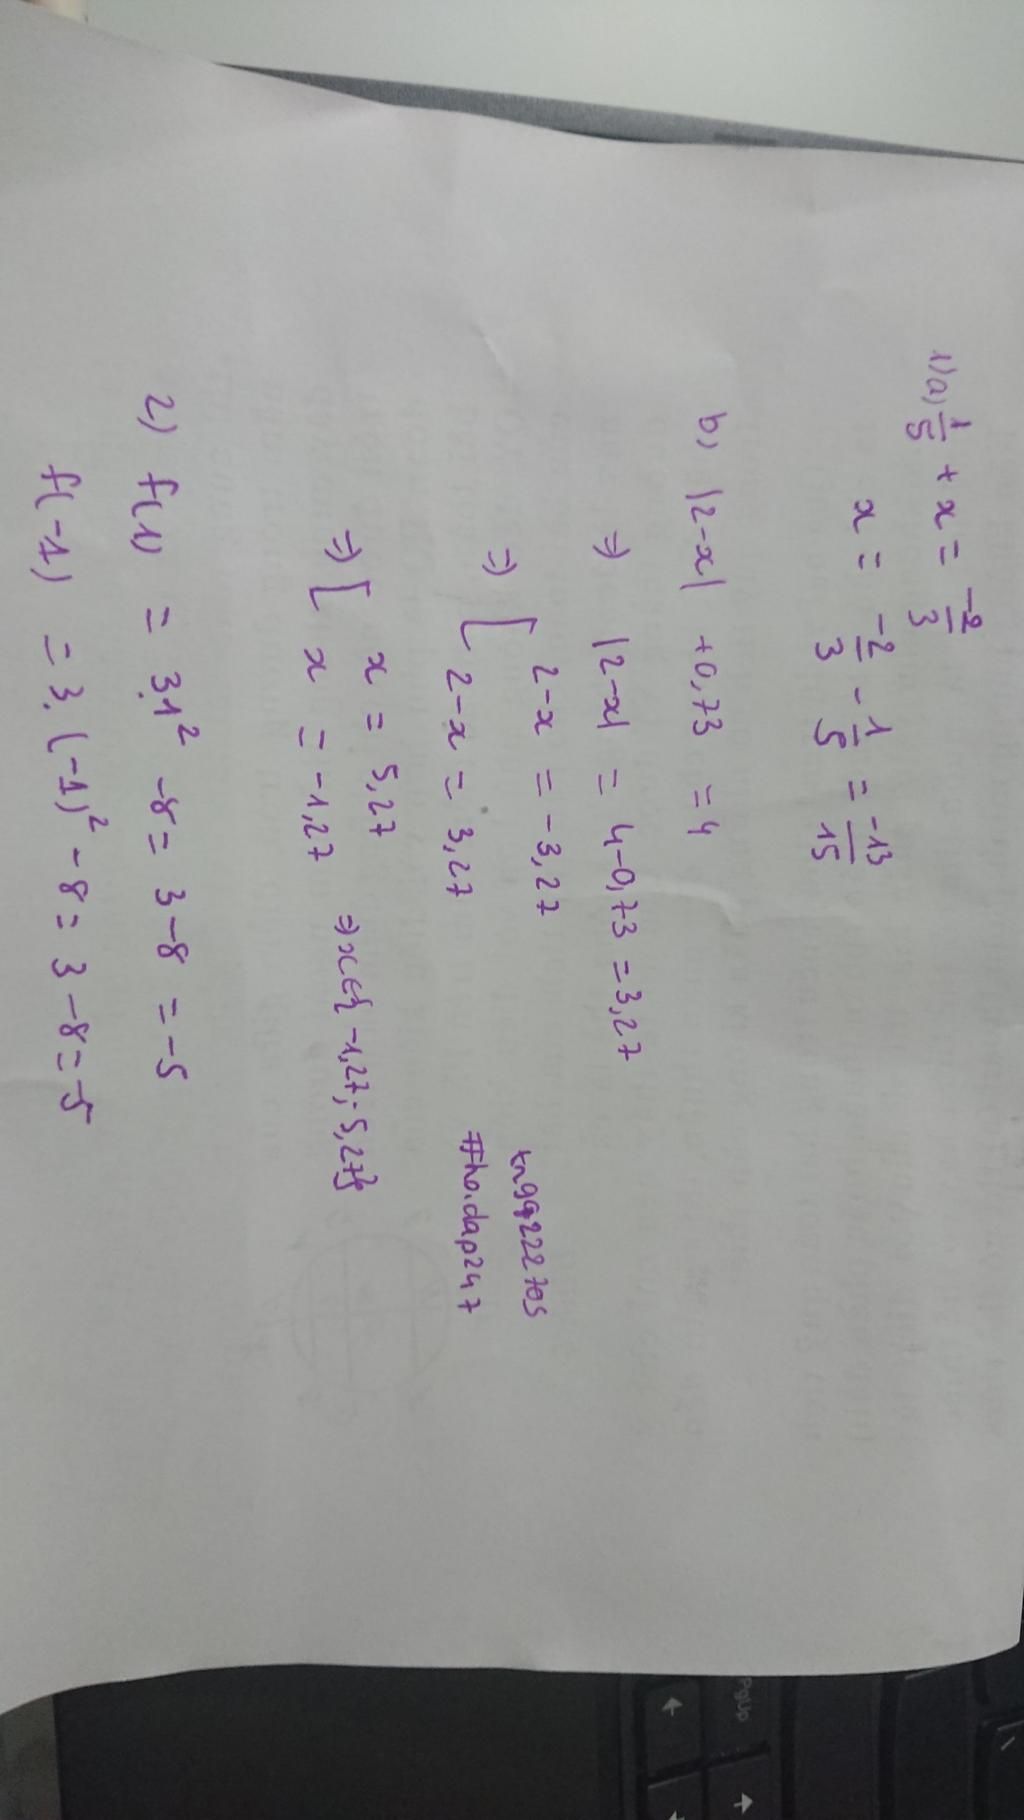 1) a) 1/5 + x = -2/3
x = -2/3 - 1/5 = -13/15
b) |2-x| +0,73 = 4
=> |2-x| = 4-0,73 = 3,27
=> [ 2-x = -3,27
2-x = 3,27
=> [ x = 5,27
x = -1,27 => x∈{-1,27; 5,27}
2) f(1) = 3.1² -8 = 3-8 = -5
f(-1) = 3.(-1)² -8 = 3-8 = -5
#hoidap247
PgUp